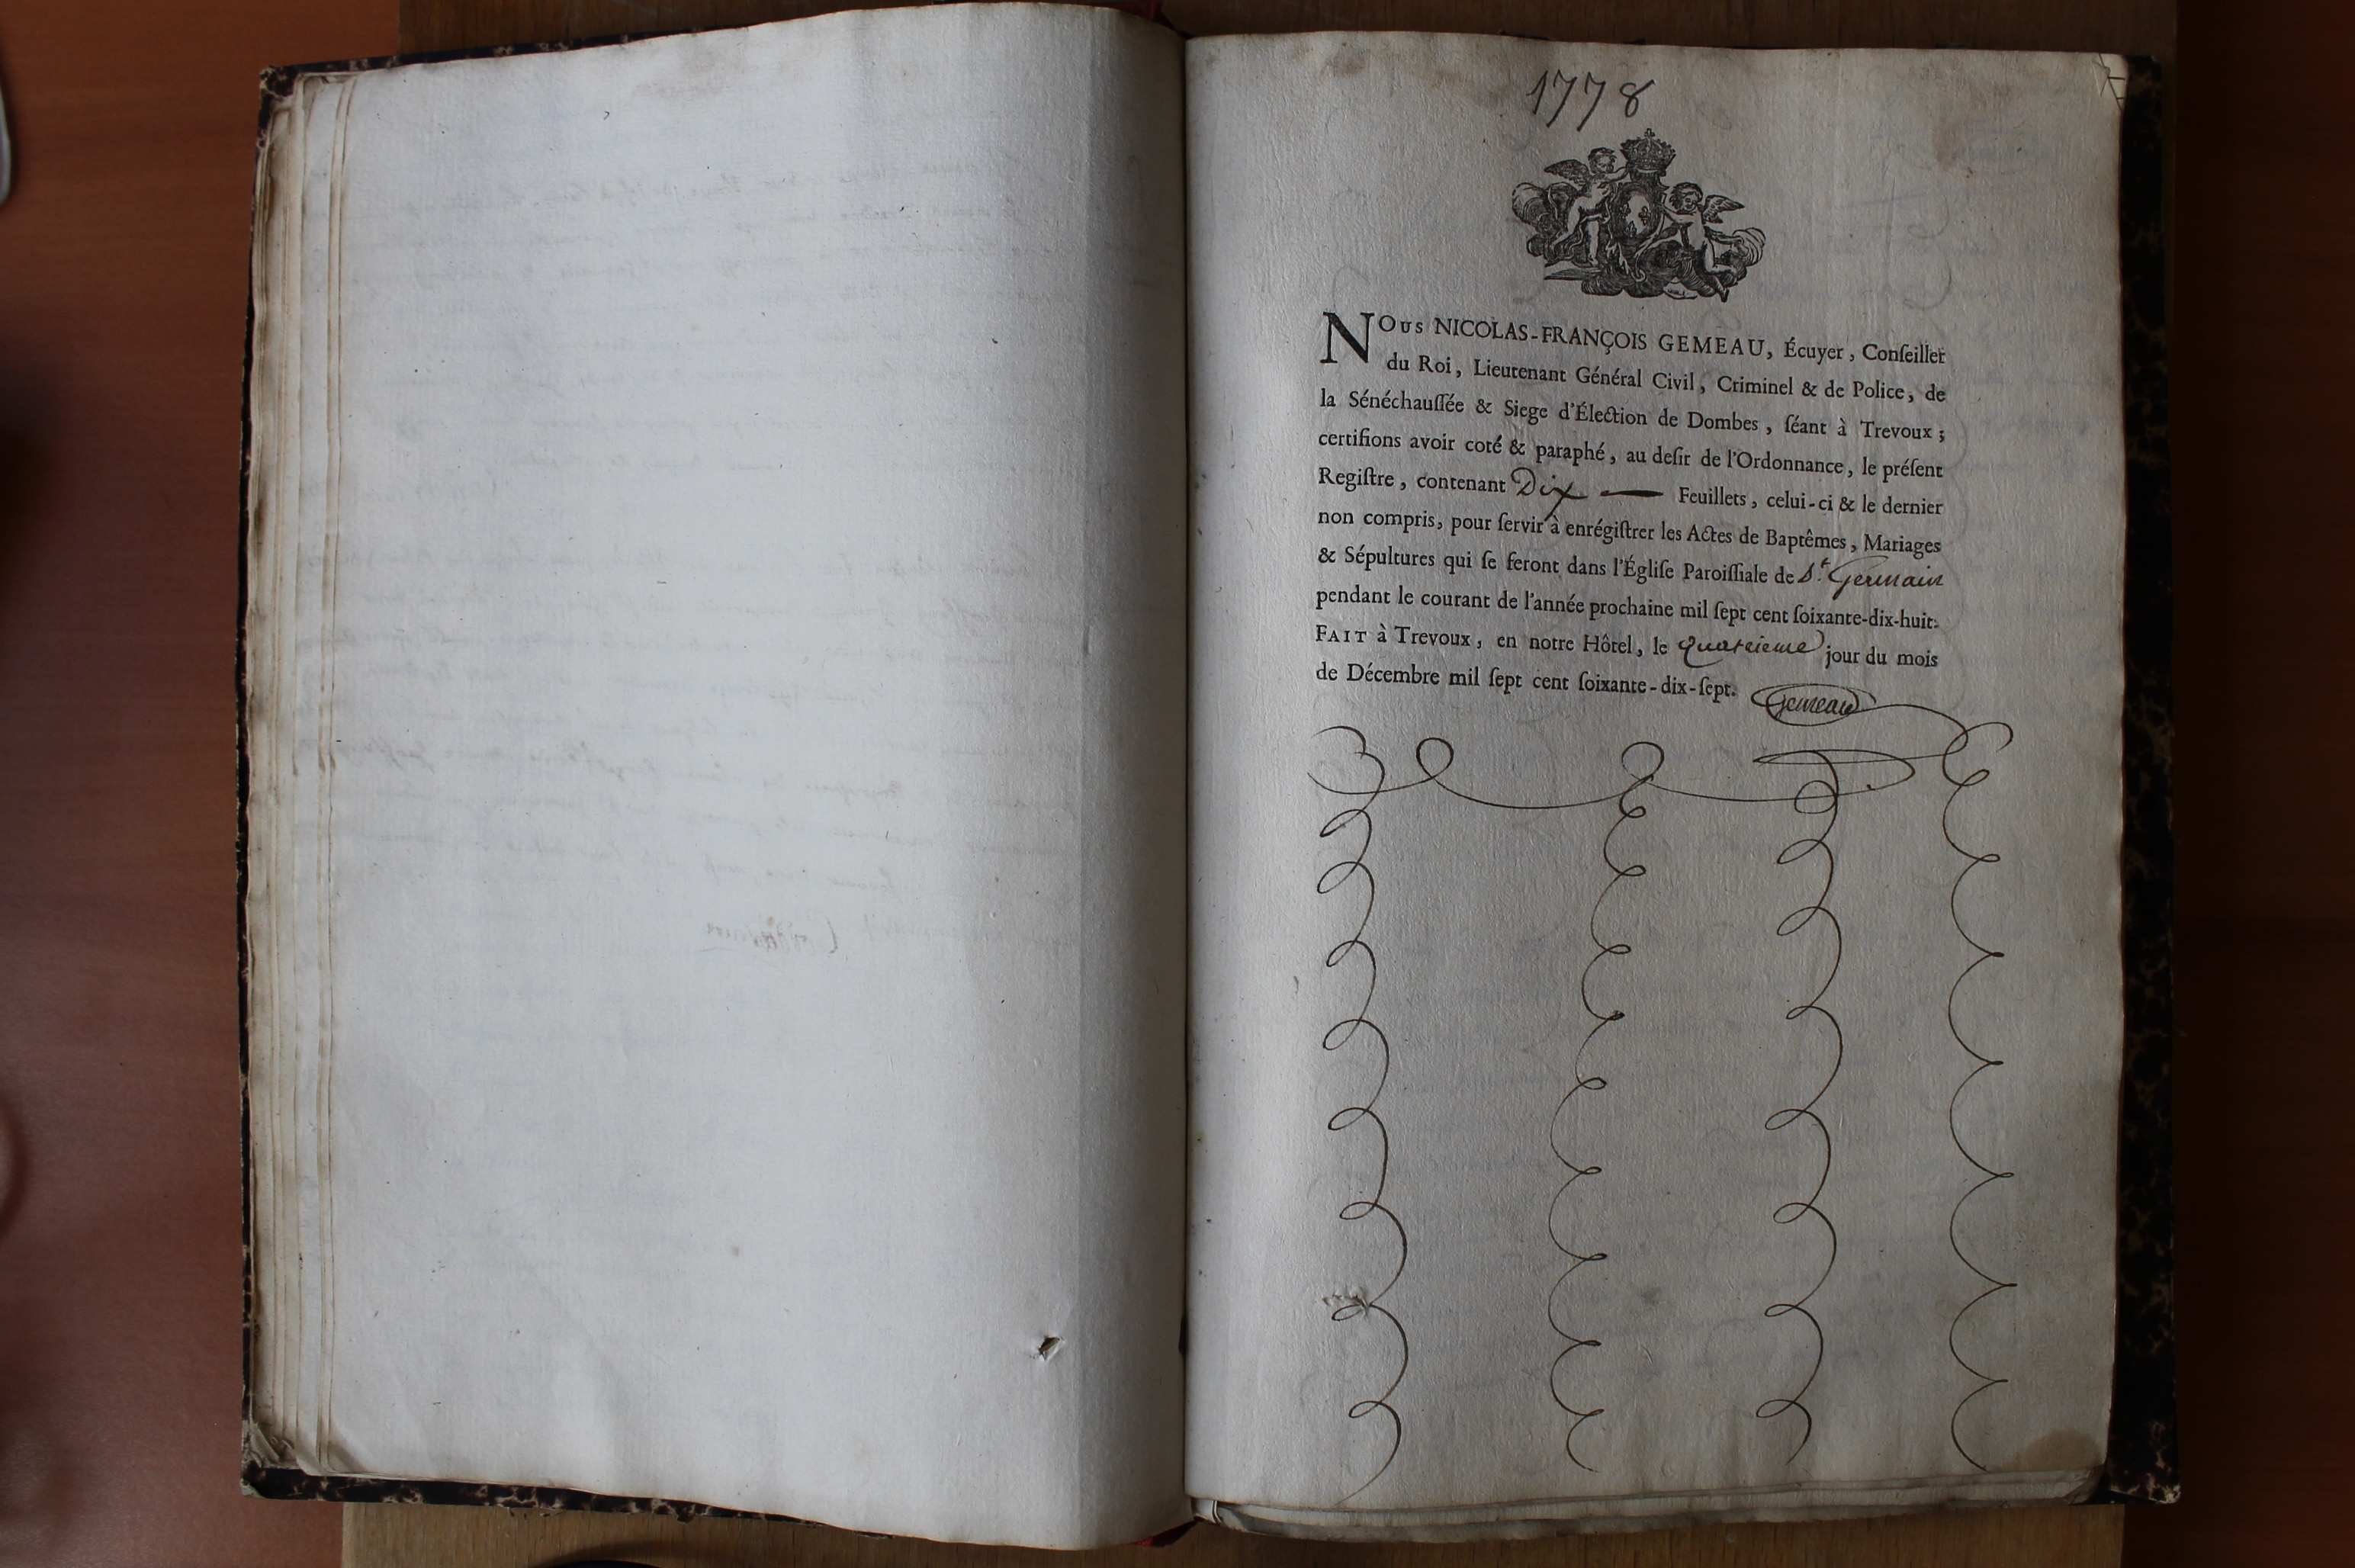 1778
NOUS NICOLAS-FRANÇOIS GEMEAU, Écuyer, Conſeiller
du Roi, Lieutenant Général Civil, Criminel & de Police, de
la Sénéchauſſée & Siege d'Élection de Dombes, ſéant à Trevoux;
certifions avoir coté & paraphé, au deſir de l'Ordonnance, le préſent
Regiſtre, contenant Dix — Feuillets, celui-ci & le dernier
non compris, pour ſervir à enrégiſtrer les Actes de Baptêmes, Mariages
& Sépultures qui ſe feront dans l'Égliſe Paroiſſiale de St. Germain
pendant le courant de l'année prochaine mil ſept cent ſoixante-dix-huit.
FAIT à Trevoux, en notre Hôtel, le quatrieme jour du mois
de Décembre mil ſept cent ſoixante-dix-ſept.
Gemeau